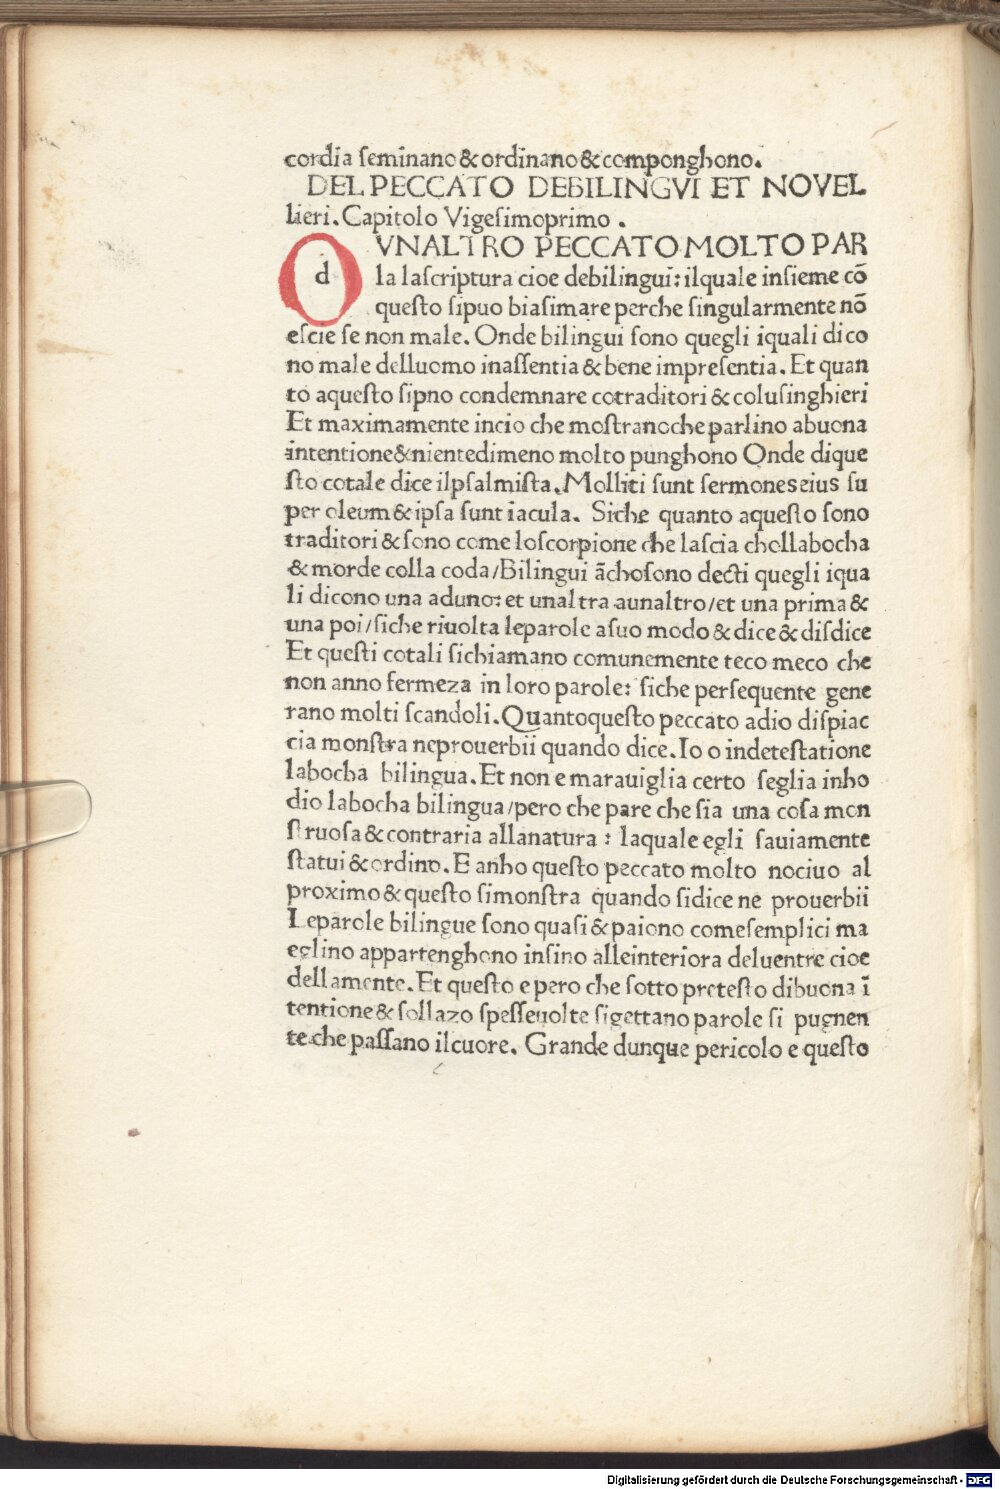 cordia seminano & ordinano & componghono.
DEL PECCATO DEBILINGVI ET NOVEL
lieri. Capitolo Vigesimoprimo .
d VNALTRO PECCATO MOLTO PAR
la lascriptura cioe debilingui: ilquale insieme cō
questo sipuo biasimare perche singularmente nō
escie se non male. Onde bilingui sono quegli iquali dico
no male delluomo inassentia & bene impresentia. Et quan
to aquesto sipno condemnare cotraditori & colusinghieri
Et maximamente incio che mostrano che parlino abuona
intentione & nientedimeno molto punghono Onde dique
sto cotale dice ilpsalmista. Molliti sunt sermones eius su
per oleum & ipsa sunt iacula. Siche quanto aquesto sono
traditori & sono come loscorpione che lascia chollabocha
& morde colla coda/Bilingui āchosono decti quegli iqua
li dicono una aduno: et unaltra aunaltro/et una prima &
una poi/siche riuolta leparole asuo modo & dice & disdice
Et questi cotali sichiamano comunemente teco meco che
non anno fermeza in loro parole: siche persequente gene
rano molti scandoli. Quantoquesto peccato adio dispiac
cia monstra neprouerbii quando dice. Io o indetestatione
labocha bilingua. Et non e marauiglia certo seglia inho
dio labocha bilingua/pero che pare che sia una cosa mon
struosa & contraria allanatura : laquale egli sauiamente
statui & ordino. E anho questo peccato molto nociuo al
proximo & questo simonstra quando sidice ne prouerbii
Leparole bilingue sono quasi & paiono comesemplici ma
eglino appartenghono insino alleinteriora deluentre cioe
dellamente. Et questo e pero che sotto pretesto dibuona ī
tentione & sollazo spesseuolte sigettano parole si pugnen
te che passano ilcuore. Grande dunque pericolo e questo
Digitalisierung gefördert durch die Deutsche Forschungsgemeinschaft - DFG